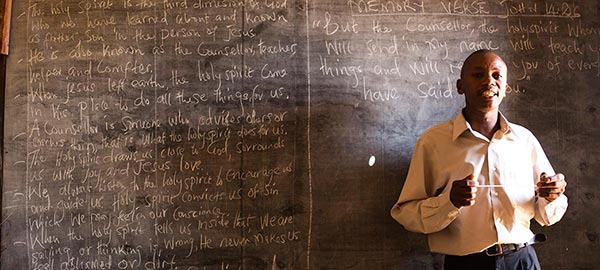 The holy spirit is the third dimension of God
who we have learned about and known
as father, Son in the person of Jesus
He is also known as the Counsellor, teacher,
helper and Comforter.
When Jesus left earth, the holy spirit came
in his place to do all these things for us.
A Counsellor is someone who advises others or
teaches them, that is what the holy spirit does for us.
The Holy spirit draws us close to God, surrounds
us with Joy and Jesus love.
We always listen to the holy spirit to encourage us
and guide us, holy spirit convicts us of Sin
Which we may feel in our conscience
When the holy spirit tells us inside that we are
saying or thinking is wrong, He never makes us
feel ashamed or dirt
MEMORY VERSE John 14:26
"But the Counsellor, the holy spirit whom
will send in my name will teach you
things and will you of every
have said you.